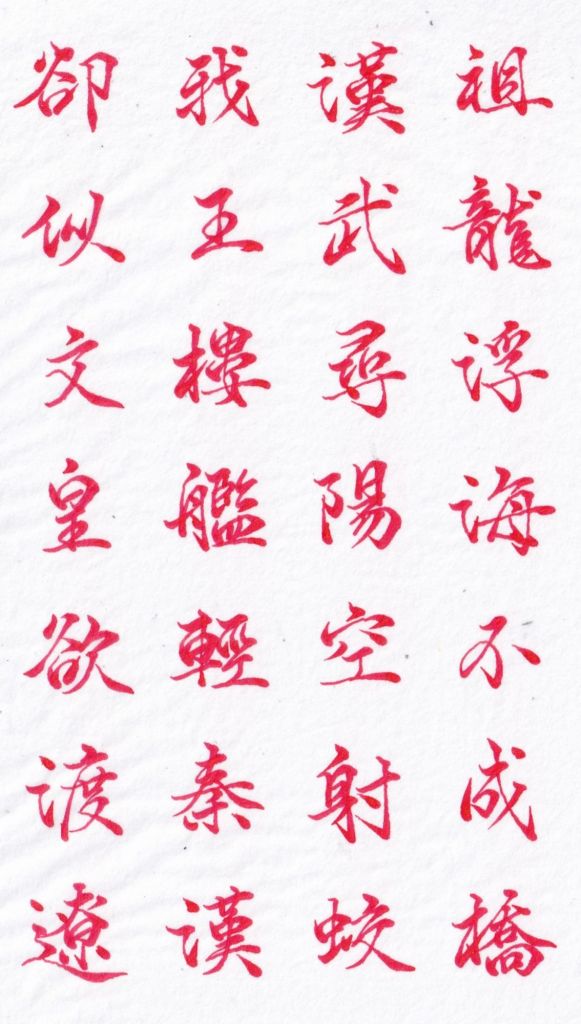 祖龍浮海不成橋
漢武尋陽空射蛟
我王樓艦輕秦漢
卻似文皇欲渡遼